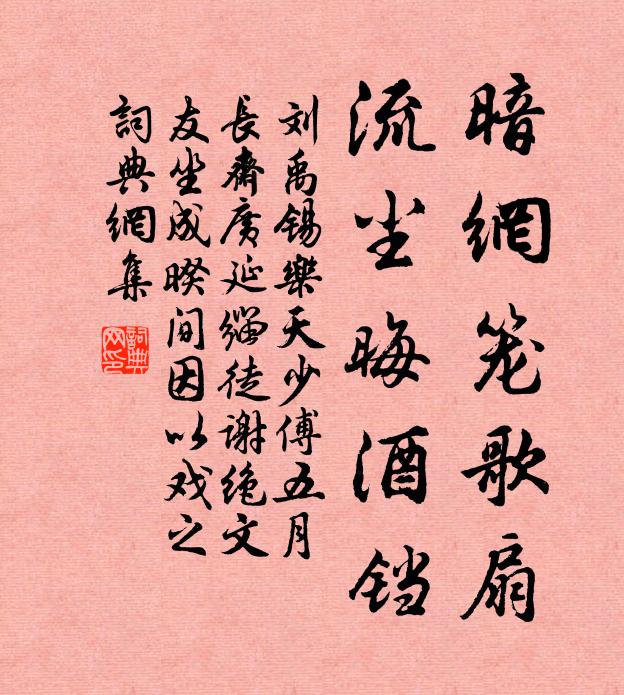 暗網笼歌扇
流尘晦酒铛
刘禹锡樂天少傅五月
長齋廣延缁徒谢绝文
友坐成暌间因以戏之
詞典網集
詞典网印